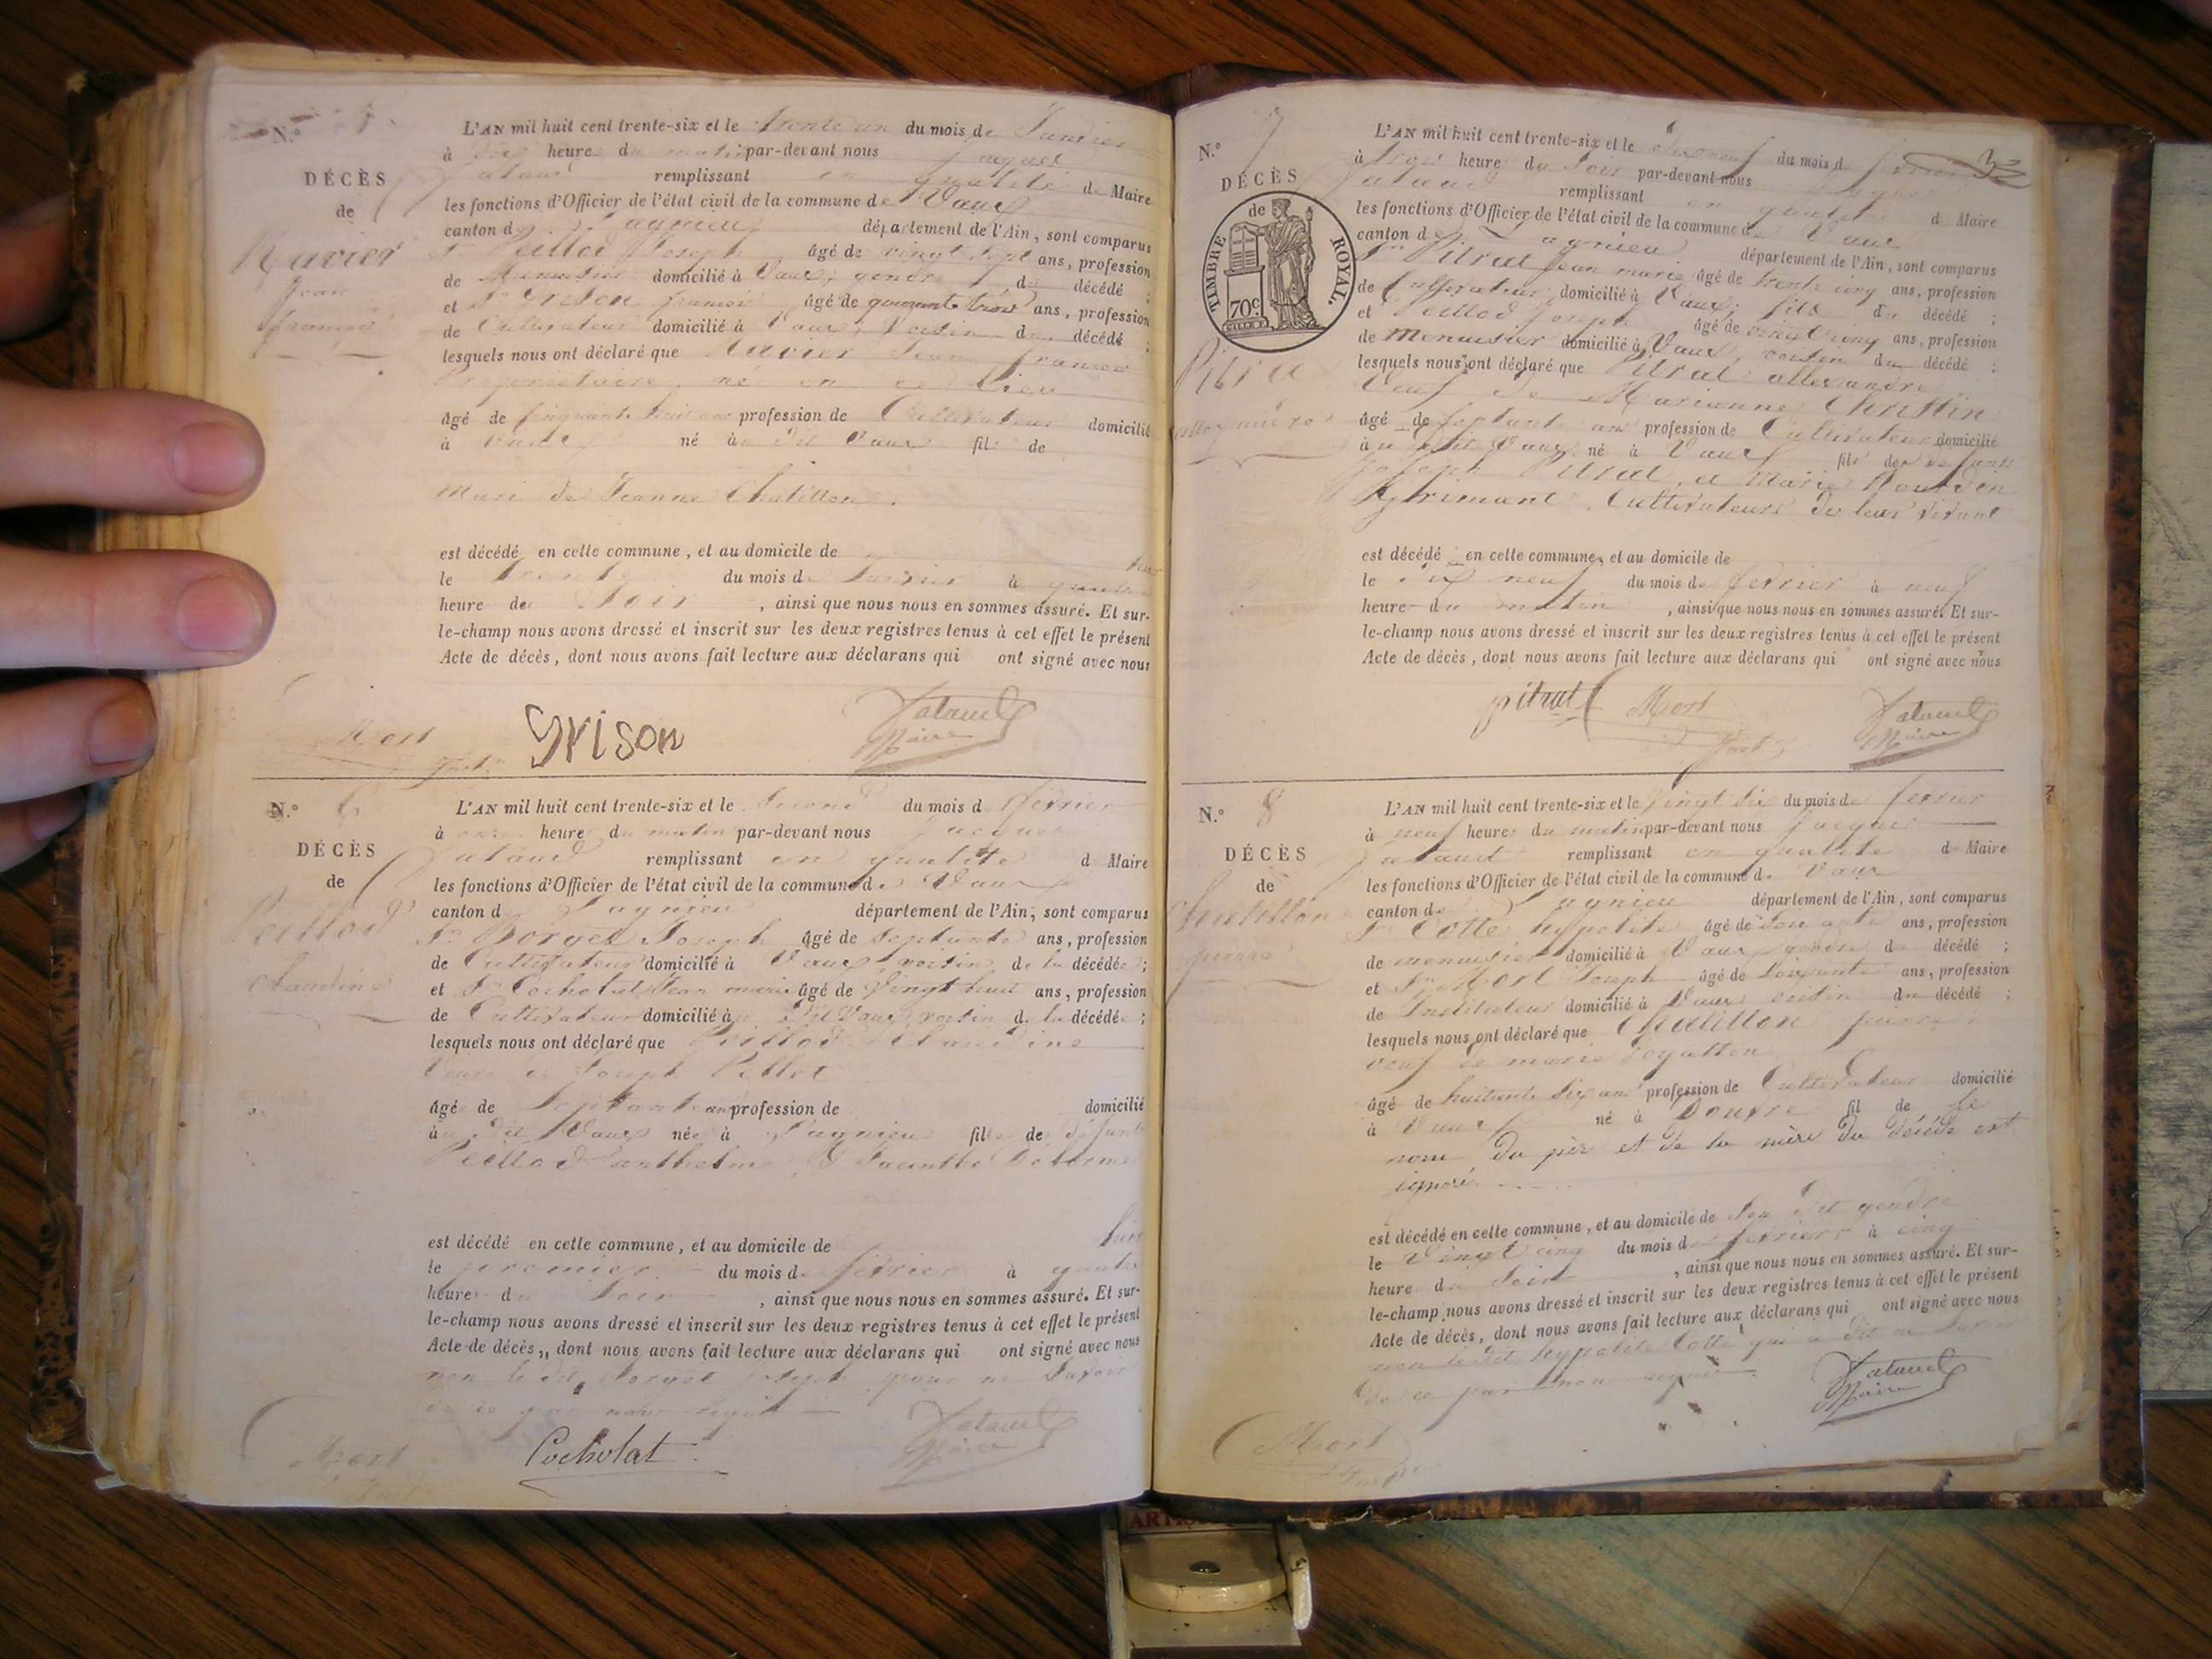 N.° 5
DÉCÈS
de
Ravier
Jean
françois
L'AN mil huit cent trente-six et le trente un du mois de Janvier
à dix heures du matin par-devant nous Jacques
Jataud remplissant en qualité de Maire
les fonctions d'Officier de l'état civil de la commune de Vaux
canton de Lagnieu département de l'Ain, sont comparus
Sr Peillod Joseph âgé de vingt sept ans, profession
de Menuisier domicilié à Vaux, gendre du décédé ;
et Sr Grison françois âgé de quarante trois ans, profession
de Cultivateur domicilié à Vaux, voisin du décédé ;
lesquels nous ont déclaré que Ravier Jean françois
Propriétaire, né en ce lieu
âgé de cinquante huit ans profession de Cultivateur domicilié
à Vaux né au dit Vaux fils de
Mari de Jeanne Chatillon.
est décédé en cette commune, et au domicile de
le trente du mois de Janvier à quatre
heure de Soir , ainsi que nous nous en sommes assuré. Et sur-
le-champ nous avons dressé et inscrit sur les deux registres tenus à cet effet le présent
Acte de décès, dont nous avons fait lecture aux déclarans qui ont signé avec nous
Mort Grison Jataud
Instr Maire
N.° 6
DÉCÈS
de
Peillod
claudine
L'AN mil huit cent trente-six et le second du mois de février
à onze heures du matin par-devant nous Jacques
Jataud remplissant en qualité de Maire
les fonctions d'Officier de l'état civil de la commune de Vaux
canton de Lagnieu département de l'Ain, sont comparus
Sr Borget Joseph âgé de septante ans, profession
de Cultivateur domicilié à Vaux voisin de la décédée ;
et Sr Cocholat Jean marie âgé de Vingt huit ans, profession
de Cultivateur domicilié au Dit Vaux, voisin de la décédée ;
lesquels nous ont déclaré que Peillod Claudine
Veuve de Joseph Pellet
âgée de septante ans profession de domicilié
au Dit Vaux née à Lagnieu fille de défunt
Peillod anthelme & Jacinthe Delorme
est décédé en cette commune, et au domicile de
le premier du mois de février à quatre
heures du Soir , ainsi que nous nous en sommes assuré. Et sur-
le-champ nous avons dressé et inscrit sur les deux registres tenus à cet effet le présent
Acte de décès, dont nous avons fait lecture aux déclarans qui ont signé avec nous
non le dit Borget Joseph pour ne savoir
de ce par nous requis
Mort Cocholat Jataud
Maire
N.° 7
DÉCÈS
de
TIMBRE ROYAL.
70c.
Pitrat
allexandre
L'AN mil huit cent trente-six et le dixneuf du mois de février
à trois heures du Soir par-devant nous
Jataud remplissant en qualité de Maire
les fonctions d'Officier de l'état civil de la commune de Vaux
canton de Lagnieu département de l'Ain, sont comparus
Sr Pitrat Jean marie âgé de trente cinq ans, profession
de Cultivateur domicilié à Vaux, fils du décédé ;
et Peillod Joseph âgé de vingt cinq ans, profession
de menuisier domicilié à Vaux, voisin du décédé ;
lesquels nous ont déclaré que Pitrat allexandre
Veuf de Marianne Christin
âgé de septante ans profession de Cultivateur domicilié
au dit Vaux né à Vaux fils de défunts
Joseph Pitrat, et Marie
Cultivateurs de leur vivant
est décédé en cette commune, et au domicile de
le dix neuf du mois de février à neuf
heure du matin , ainsi que nous nous en sommes assuré. Et sur-
le-champ nous avons dressé et inscrit sur les deux registres tenus à cet effet le présent
Acte de décès, dont nous avons fait lecture aux déclarans qui ont signé avec nous
pitrat Mort Jataud
Instr Maire
N.° 8
DÉCÈS
de
Chatillon
pierre
L'AN mil huit cent trente-six et le Vingt six du mois de février
à neuf heures du matin par-devant nous Jacques
Jataud remplissant en qualité de Maire
les fonctions d'Officier de l'état civil de la commune de Vaux
canton de Lagnieu département de l'Ain, sont comparus
Sr Cotte hypolite âgé de ans, profession
de menuisier domicilié à Vaux gendre du décédé ;
et Sr Mort Joseph âgé de soixante ans, profession
de Instituteur domicilié à Vaux voisin du décédé ;
lesquels nous ont déclaré que Chatillon pierre
veuf de marie
âgé de huitante six ans profession de Cultivateur domicilié
à Vaux né à Douvre fil de le
nom du père et de la mère du décédé est
ignoré
est décédé en cette commune, et au domicile de son dit gendre
le Vingt cinq du mois de février à cinq
heure du Soir , ainsi que nous nous en sommes assuré. Et sur-
le-champ nous avons dressé et inscrit sur les deux registres tenus à cet effet le présent
Acte de décès, dont nous avons fait lecture aux déclarans qui ont signé avec nous
non le dit hypolite Cotte qui a dit ne savoir
de ce par nous requis.
Jataud
Maire
Mort
Instr